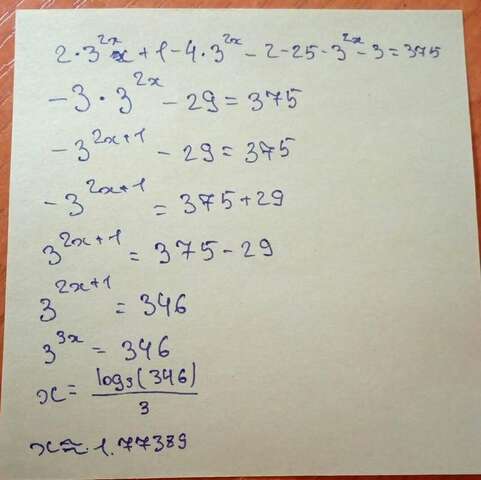 2·3^{2x}x+1-4·3^{2x}-2-25-3^{2x}-3=375
-3·3^{2x}-29=375
-3^{2x+1}-29=375
-3^{2x+1}=375+29
3^{2x+1}=375-29
3^{2x+1}=346
3^{3x}=346
x=\frac{log_3(346)}{3}
x≈1.77389